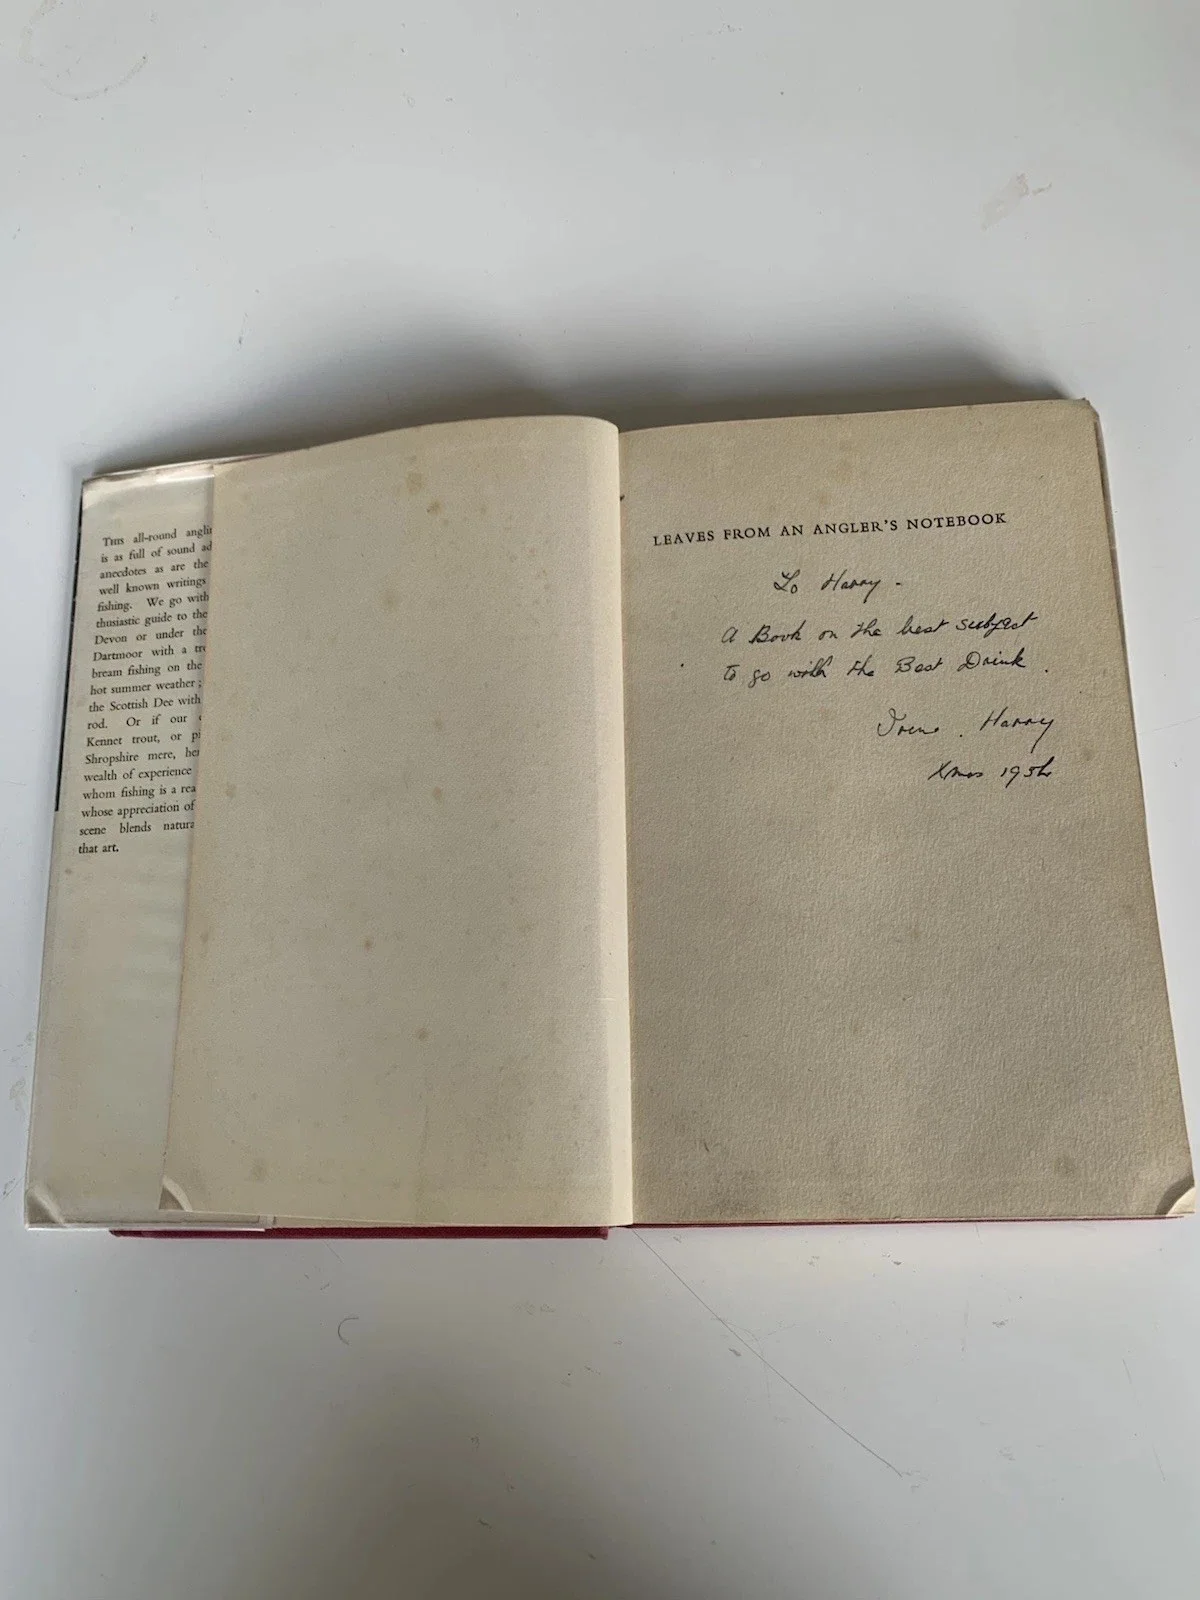 THIS all-round anglin
is as full of sound ad
anecdotes as are the
well known writings
fishing. We go with
thusiastic guide to the
Devon or under the
Dartmoor with a tro
bream fishing on the
hot summer weather ;
the Scottish Dee with
rod. Or if our
Kennet trout, or pi
Shropshire mere, her
wealth of experience
whom fishing is a rea
whose appreciation of
scene blends natura
that art.
LEAVES FROM AN ANGLER'S NOTEBOOK
To Harry -
A Book on the best subject
to go with the Best Drink.
Irene. Harry
Xmas 1954